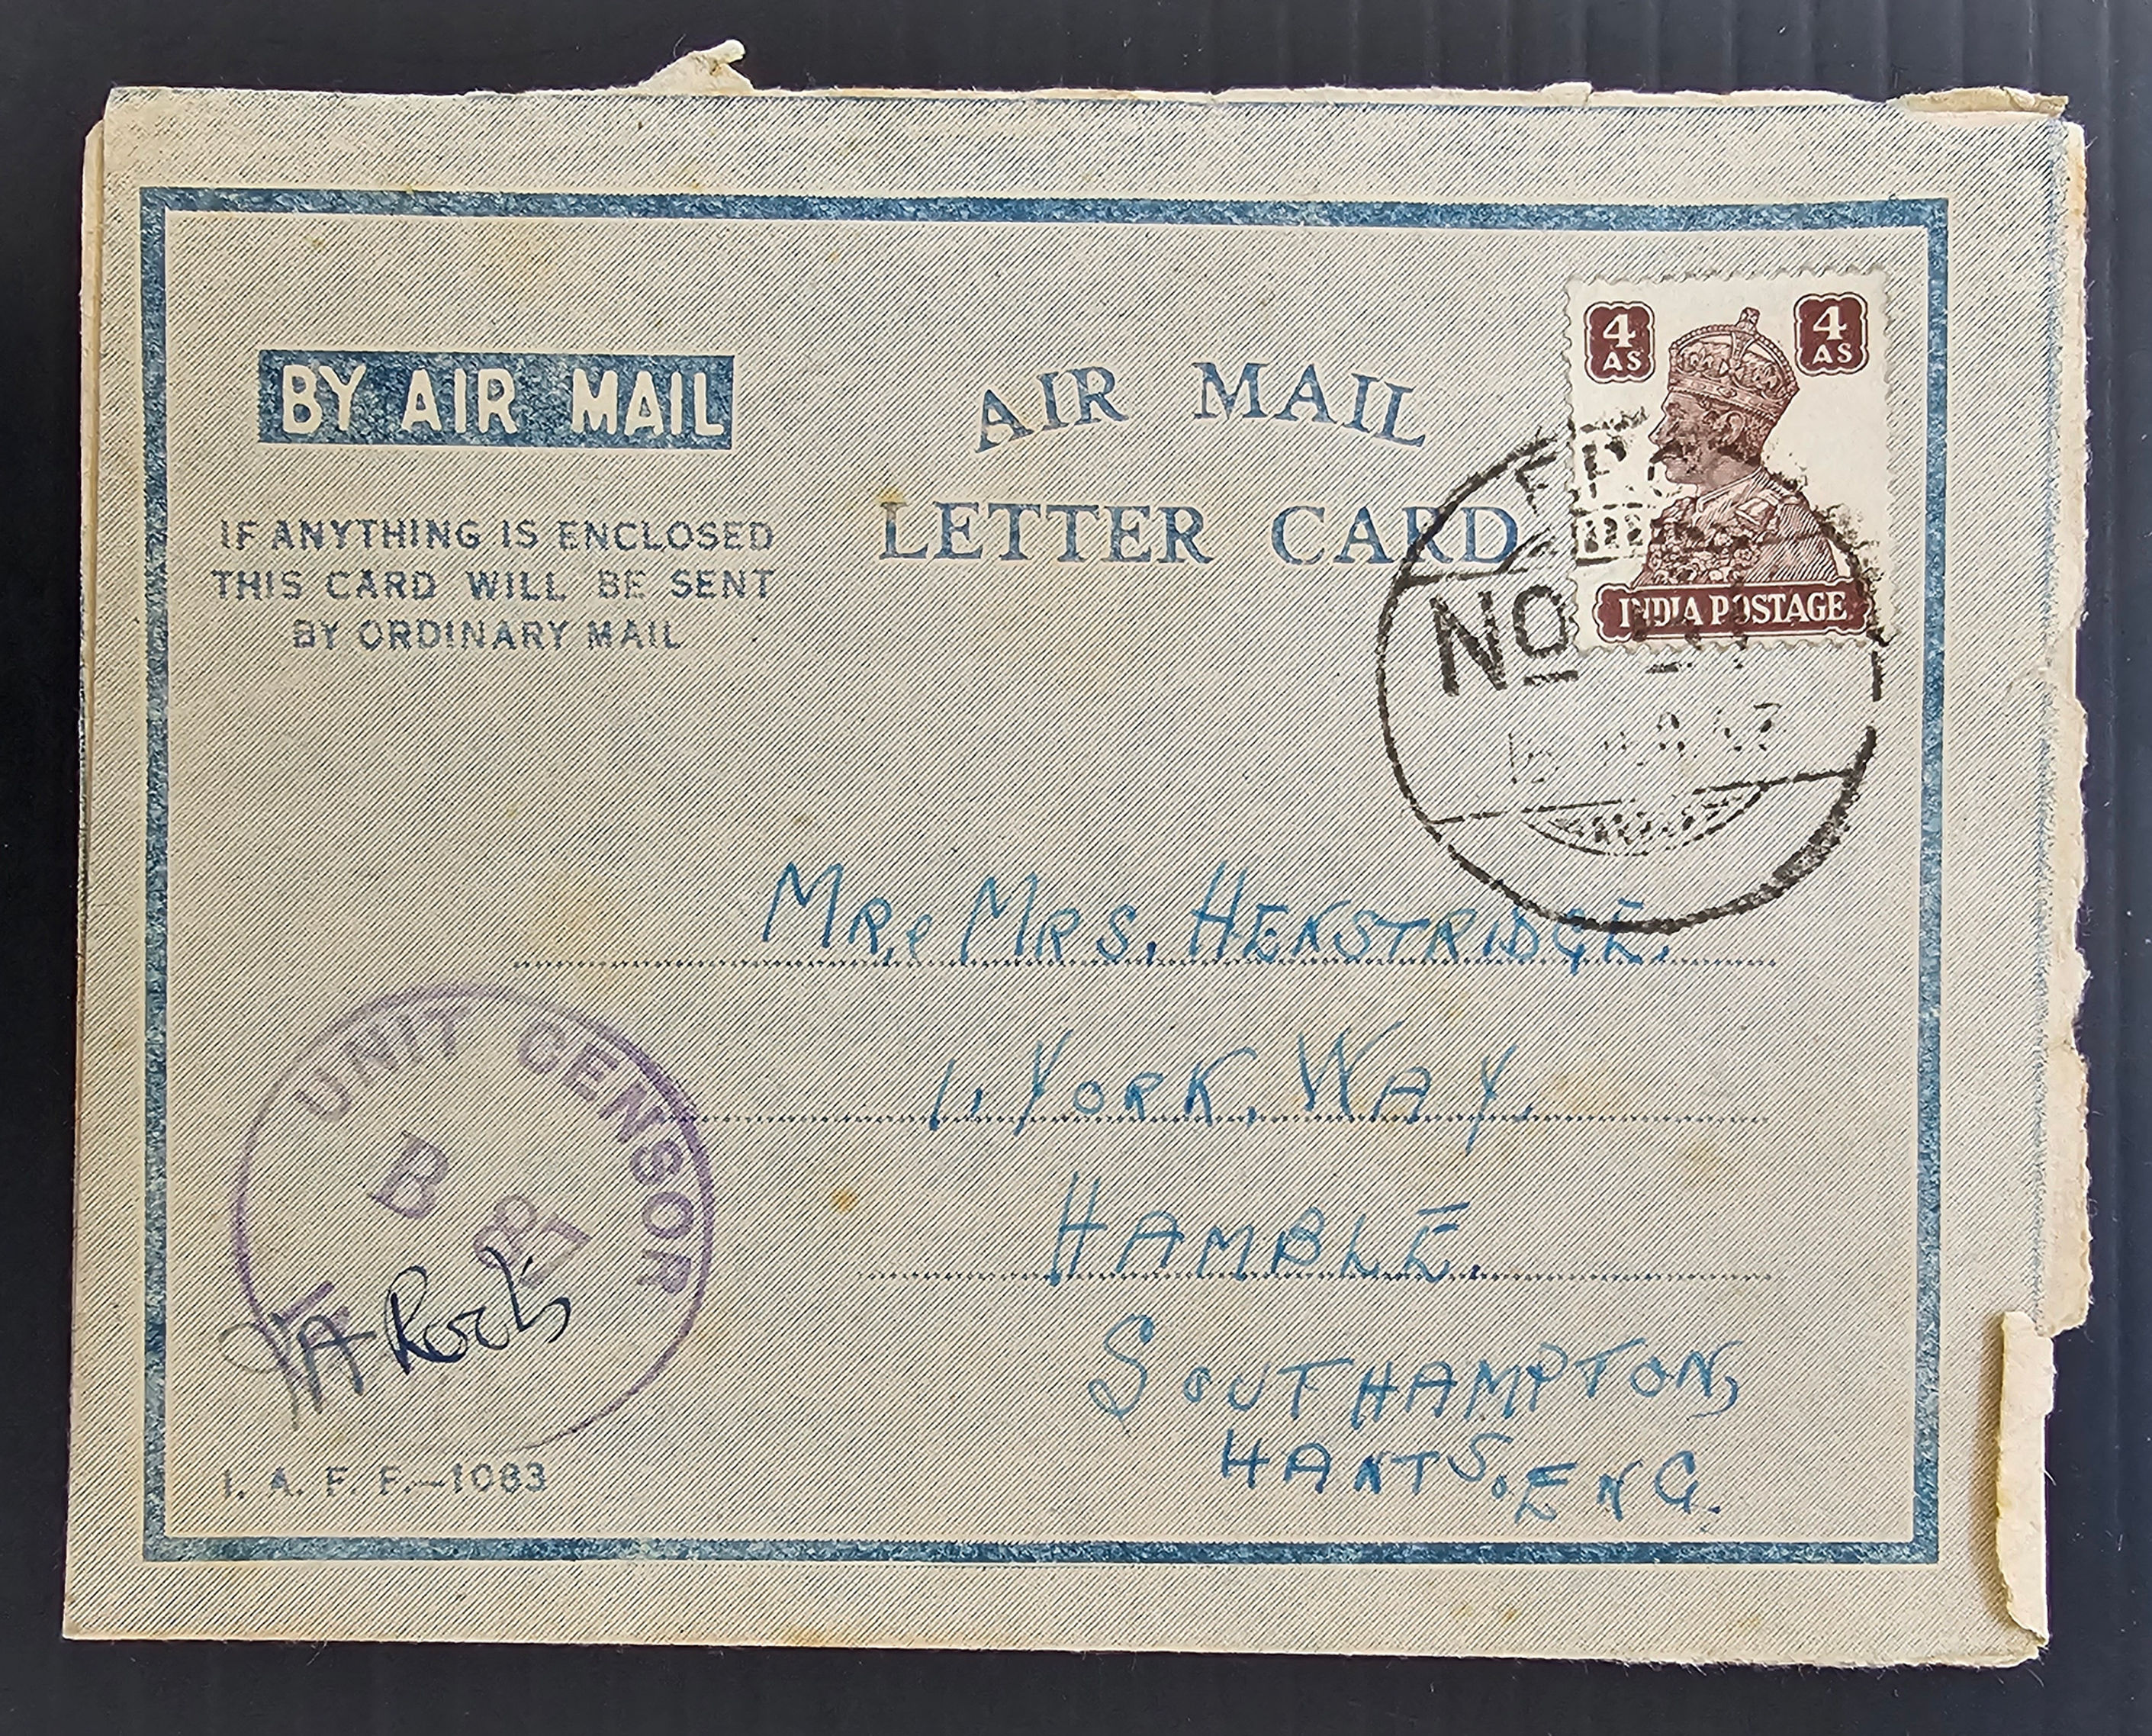 BY AIR MAIL
IF ANYTHING IS ENCLOSED
THIS CARD WILL BE SENT
BY ORDINARY MAIL
AIR MAIL
LETTER CARD
4 AS
4 AS
INDIA POSTAGE
F.P.O.
No
MR. & MRS. HENSTRIDGE.
1, YORK, WAY,
HAMBLE.
SOUTHAMPTON,
HANTS. ENG.
UNIT CENSOR
B
87
I. A. F. F.—1083